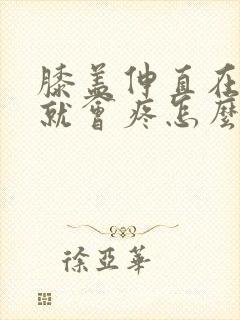 膝盖伸直在
就會疼怎麼
徐亞華